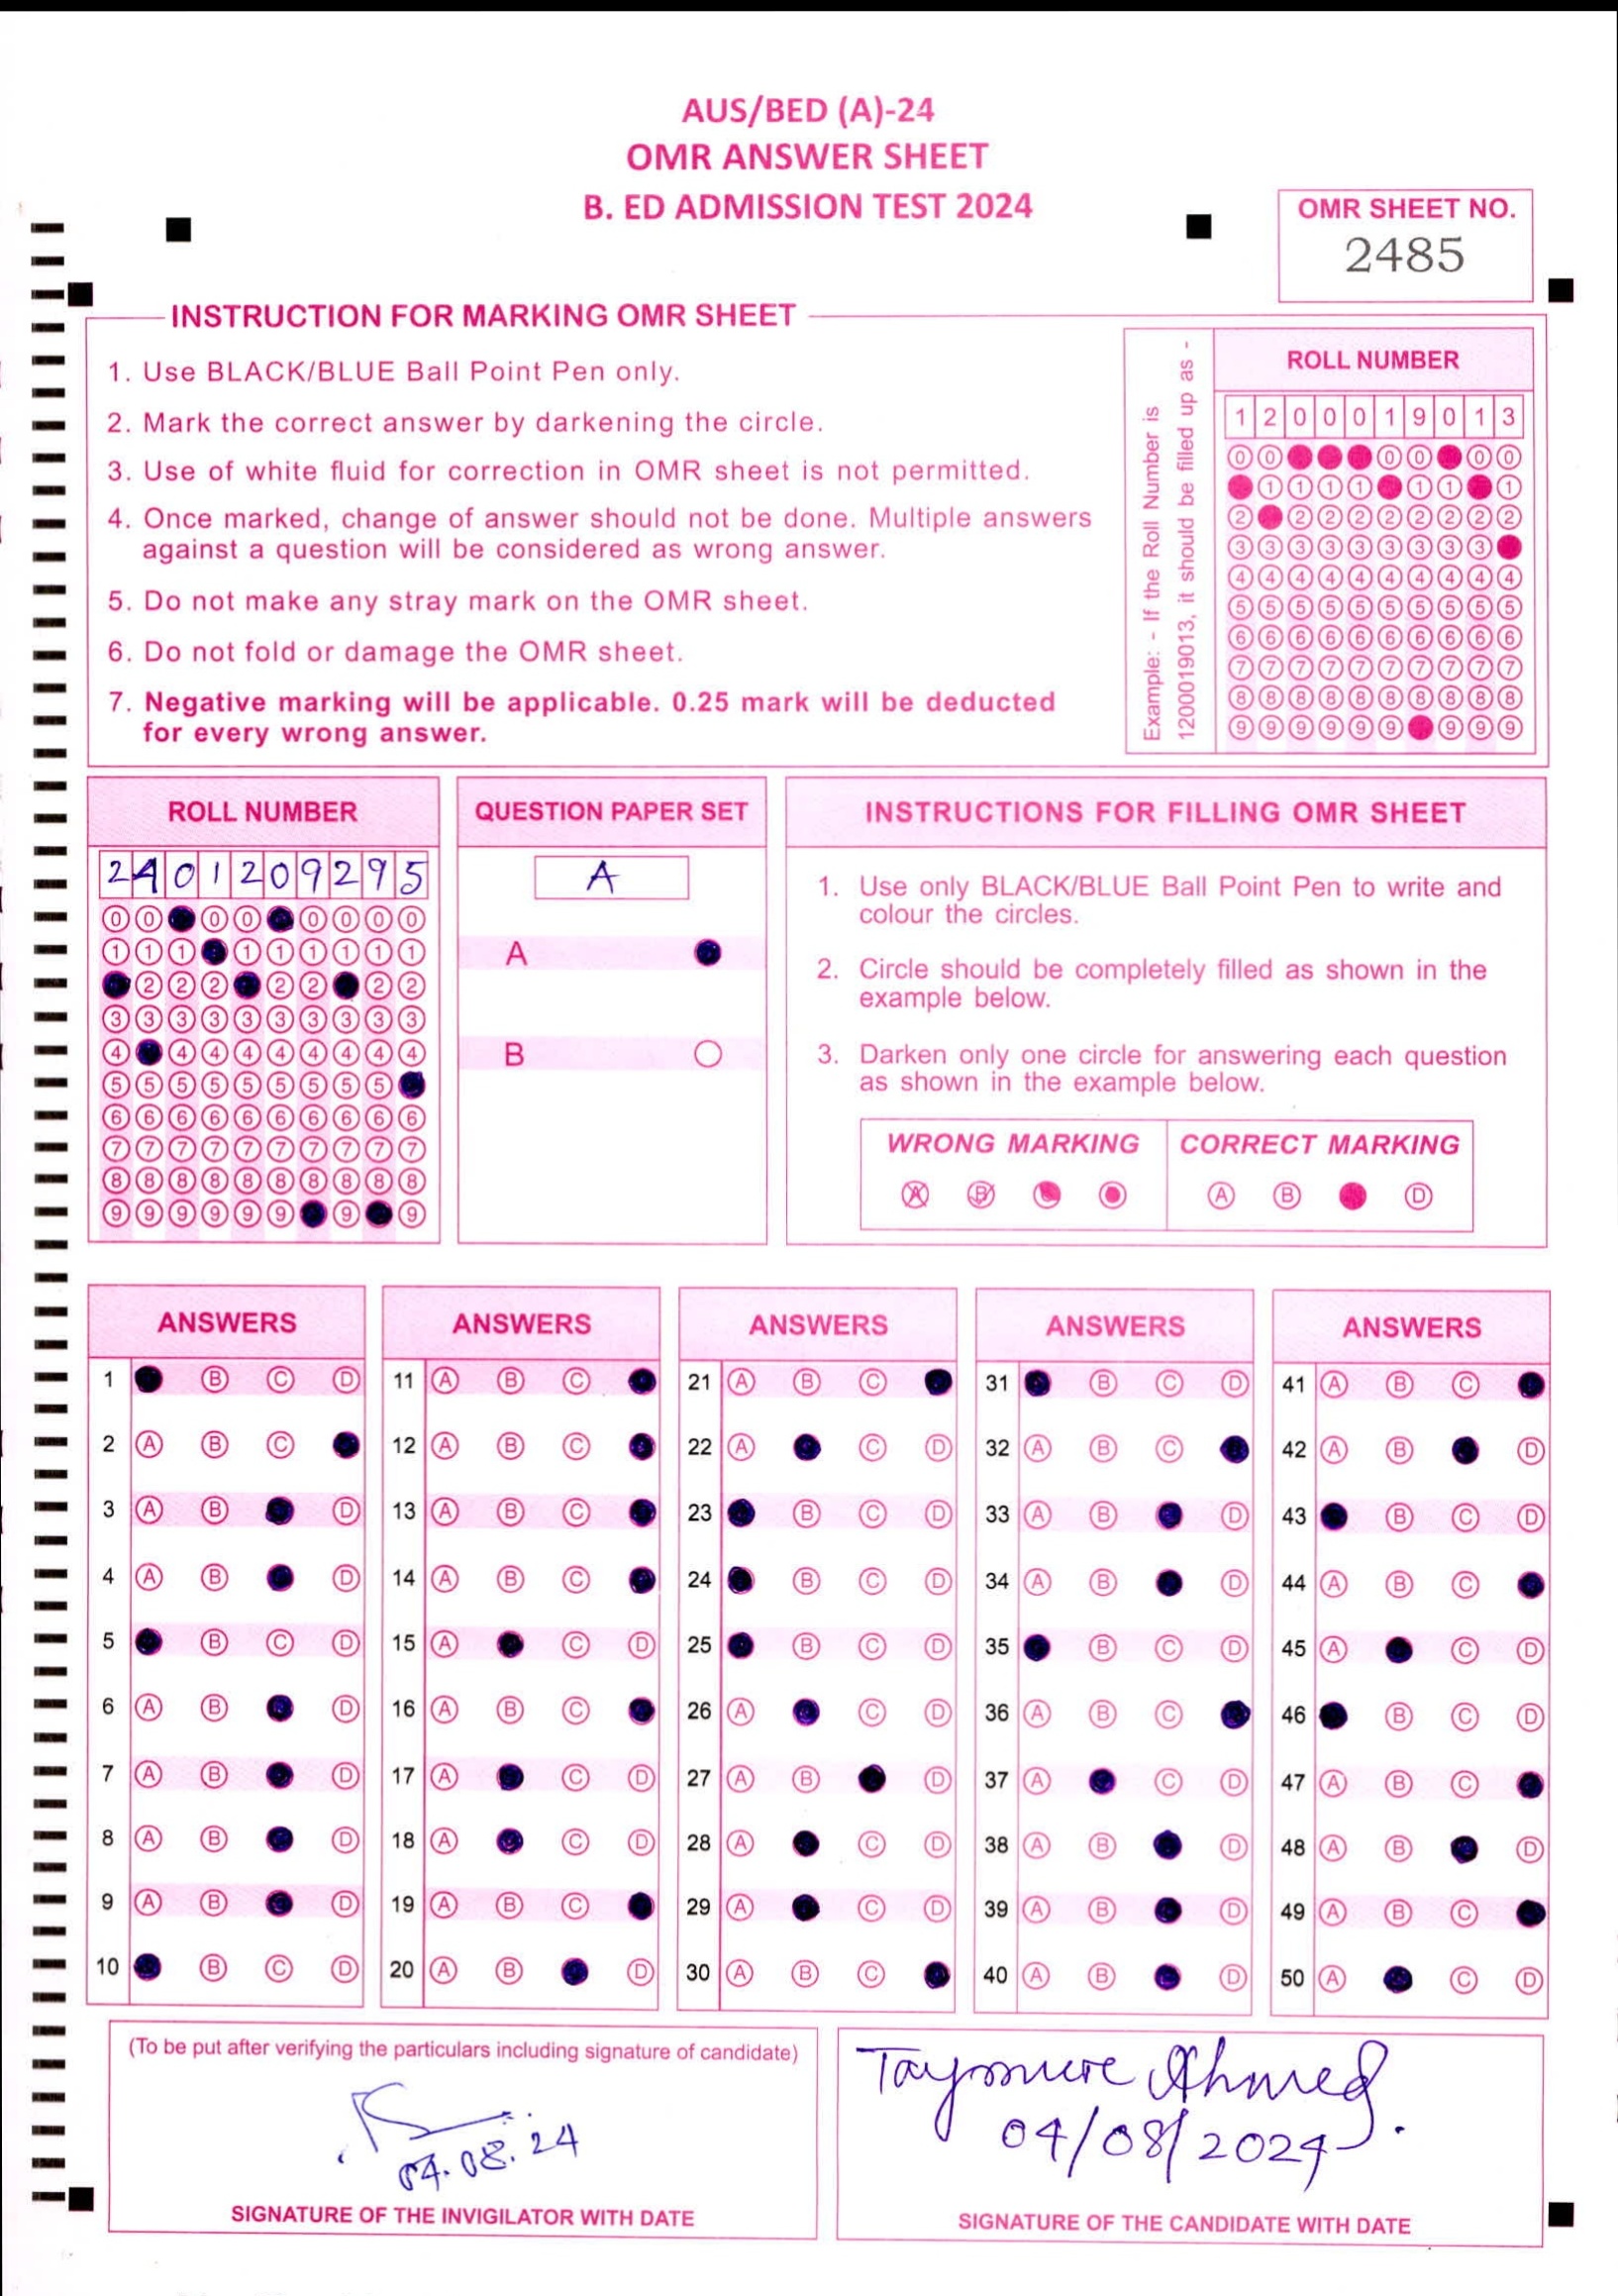 AUS/BED (A)-24
OMR ANSWER SHEET
B. ED ADMISSION TEST 2024
OMR SHEET NO.
2485
INSTRUCTION FOR MARKING OMR SHEET
1. Use BLACK/BLUE Ball Point Pen only.
2. Mark the correct answer by darkening the circle.
3. Use of white fluid for correction in OMR sheet is not permitted.
4. Once marked, change of answer should not be done. Multiple answers
against a question will be considered as wrong answer.
5. Do not make any stray mark on the OMR sheet.
6. Do not fold or damage the OMR sheet.
7. Negative marking will be applicable. 0.25 mark will be deducted
for every wrong answer.
Example: - If the Roll Number is
1200019013, it should be filled up as -
ROLL NUMBER
1 2 0 0 0 1 9 0 1 3
0 0 0 0 0 0
1 1 1 1 1 1 1
2 2 2 2 2 2 2 2 2
3 3 3 3 3 3 3 3 3
4 4 4 4 4 4 4 4 4 4
5 5 5 5 5 5 5 5 5 5
6 6 6 6 6 6 6 6 6 6
7 7 7 7 7 7 7 7 7 7
8 8 8 8 8 8 8 8 8 8
9 9 9 9 9 9 9 9 9
ROLL NUMBER
2 4 0 1 2 0 9 2 9 5
0 0 0 0 0 0 0 0
1 1 1 1 1 1 1 1 1
2 2 2 2 2 2 2
3 3 3 3 3 3 3 3 3 3
4 4 4 4 4 4 4 4 4
5 5 5 5 5 5 5 5 5
6 6 6 6 6 6 6 6 6 6
7 7 7 7 7 7 7 7 7 7
8 8 8 8 8 8 8 8 8 8
9 9 9 9 9 9 9 9
QUESTION PAPER SET
A
A
B
INSTRUCTIONS FOR FILLING OMR SHEET
1. Use only BLACK/BLUE Ball Point Pen to write and
colour the circles.
2. Circle should be completely filled as shown in the
example below.
3. Darken only one circle for answering each question
as shown in the example below.
WRONG MARKING
A B
CORRECT MARKING
A B D
ANSWERS
1 B C D
2 A B C
3 A B D
4 A B D
5 B C D
6 A B D
7 A B D
8 A B D
9 A B D
10 B C D
ANSWERS
11 A B C
12 A B C
13 A B C
14 A B C
15 A C D
16 A B C
17 A C D
18 A C D
19 A B C
20 A B D
ANSWERS
21 A B C
22 A C D
23 B C D
24 B C D
25 B C D
26 A C D
27 A B D
28 A C D
29 A C D
30 A B C
ANSWERS
31 B C D
32 A B C
33 A B D
34 A B D
35 B C D
36 A B C
37 A C D
38 A B D
39 A B D
40 A B D
ANSWERS
41 A B C
42 A B D
43 B C D
44 A B C
45 A C D
46 B C D
47 A B C
48 A B D
49 A B C
50 A C D
(To be put after verifying the particulars including signature of candidate)
04.08.24
SIGNATURE OF THE INVIGILATOR WITH DATE
Taymure Ahmed
04/08/2024
SIGNATURE OF THE CANDIDATE WITH DATE